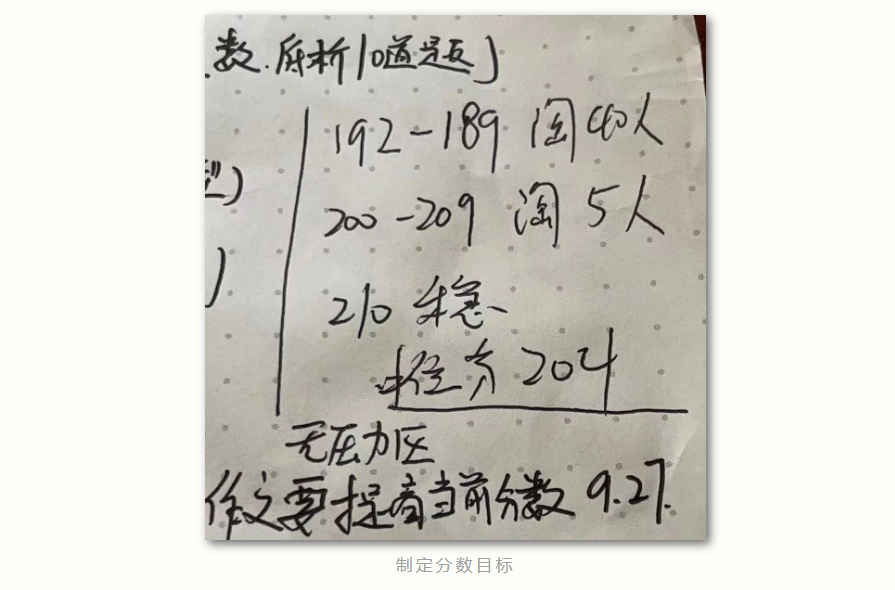 数.解析10道题)
192-189 淘40人
200-209 淘5人
210 稳
中位分204
无压力区
作文要提高当前分数 9.27.
制定分数目标